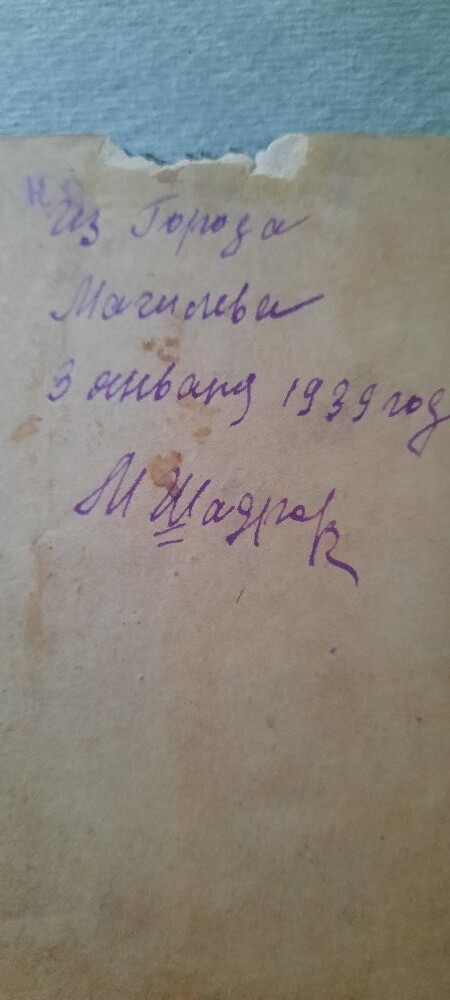 Из Города
Магилева
3 января 1939 год
М Шадрок